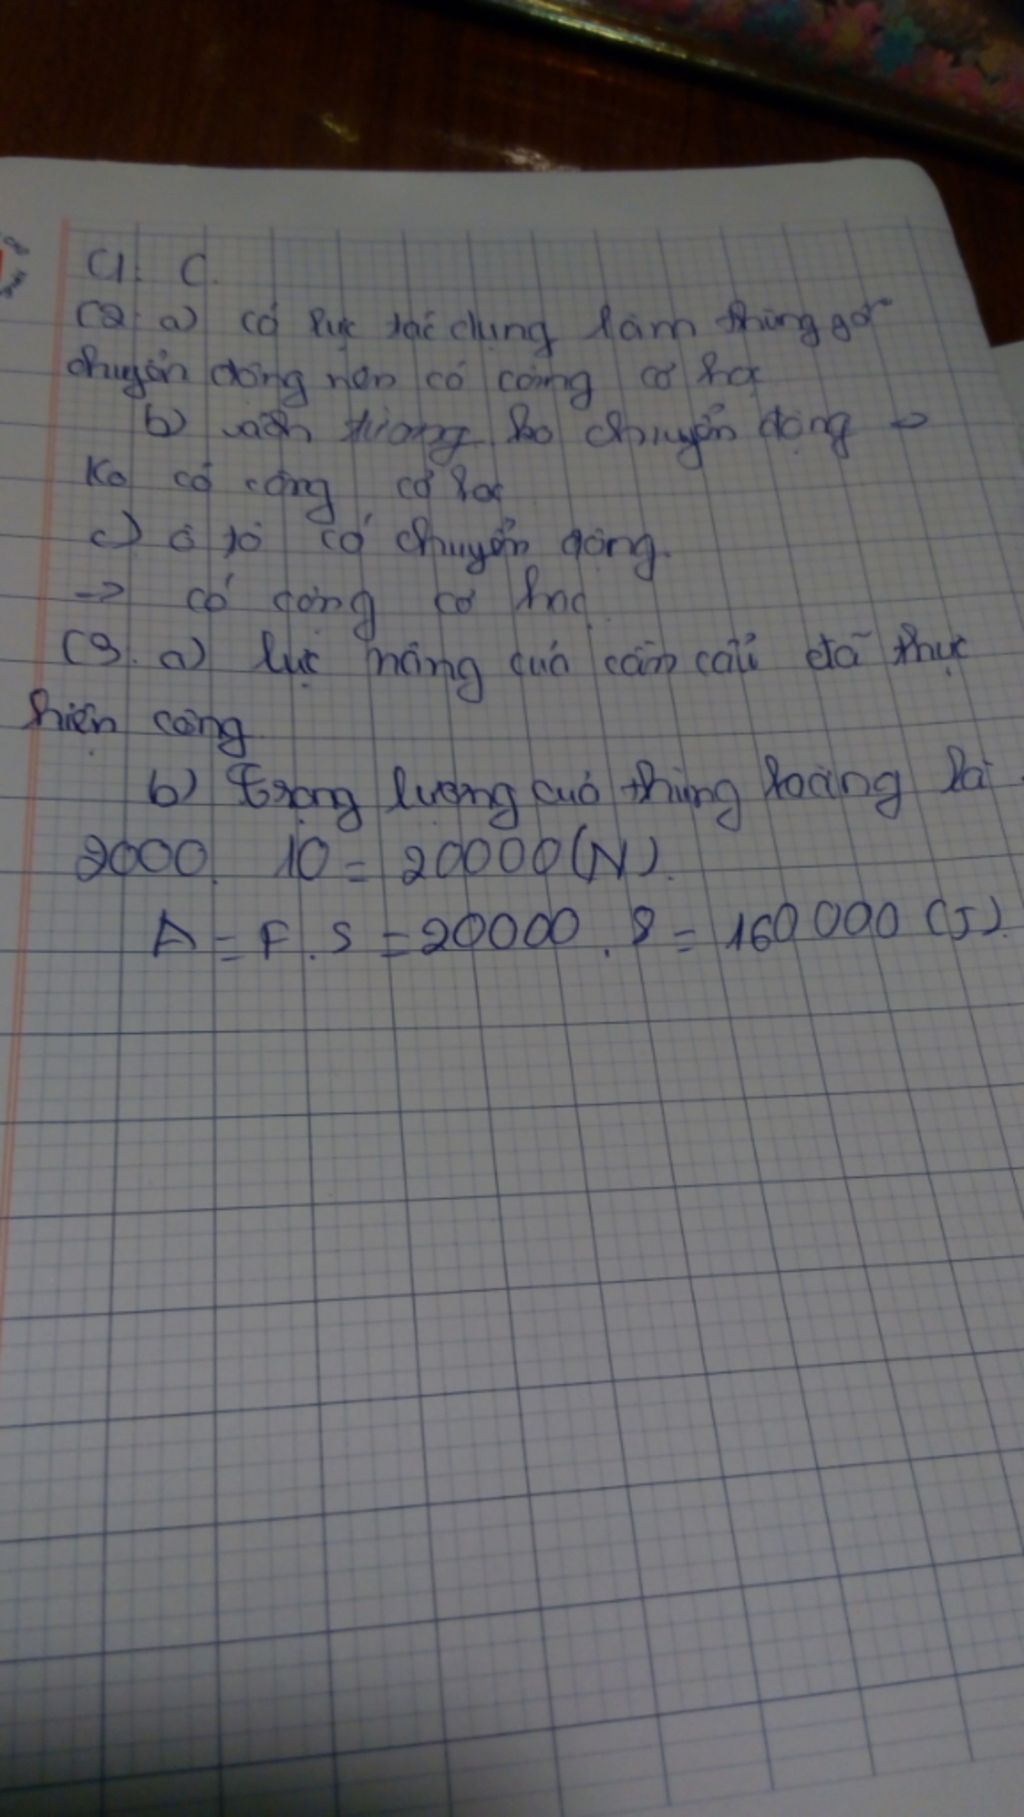 C1. C.
C2. a) có lực tác dụng làm thùng gỗ
chuyển động nên có công cơ học
b) ko chuyển động →
Ko có công cơ học
c) ô tô có chuyển động.
→ có công cơ học
C3. a) lực nâng của cần cẩu đã thực
hiện công
b) trọng lượng của thùng hàng là
2000. 10 = 20000 (N).
A = F. S = 20000. 8 = 160 000 (J).